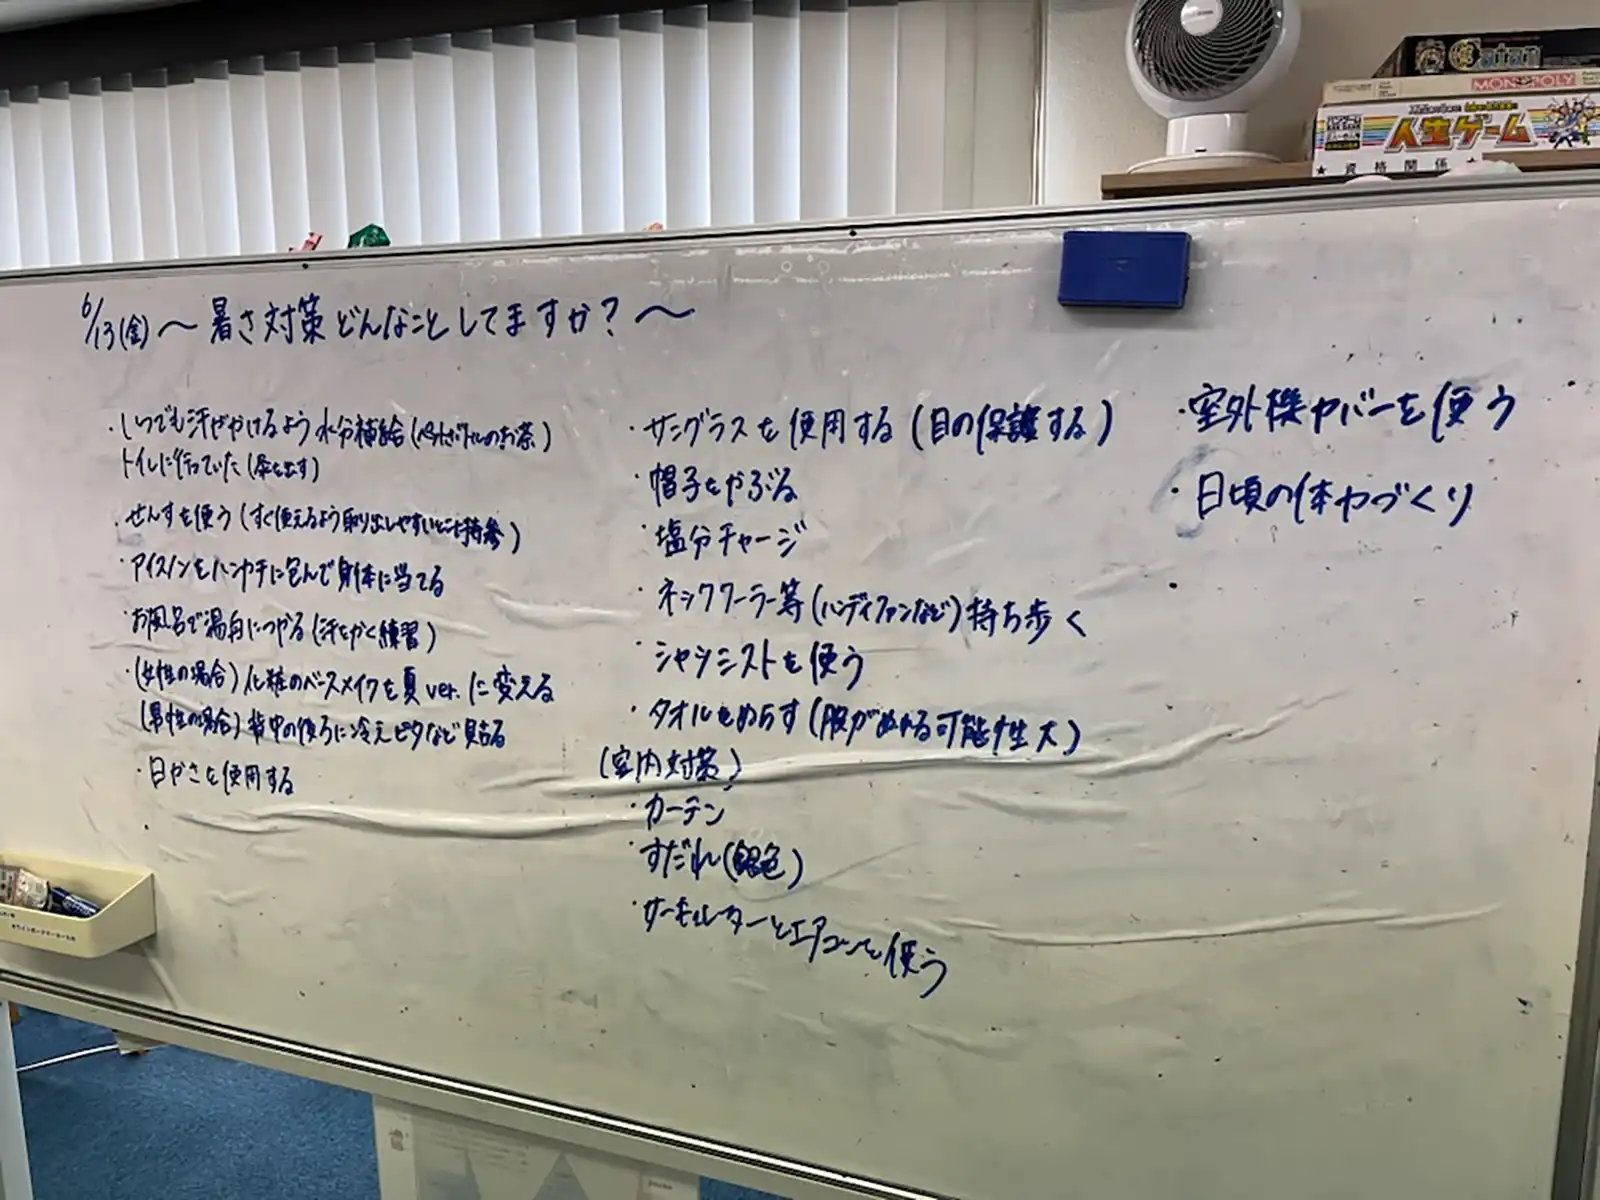 6/13(金) 〜暑さ対策どんなことしてますか?〜
・いつでも汗がかけるよう水分補給(ペットボトルのお茶)
トイレに行っていた(尿を出す)
・せんすを使う(すぐ使えるよう取り出しやすいとこに持参)
・アイスノンをハンカチに包んで身体に当てる
・お風呂で湯舟につかる(汗をかく練習)
・(女性の場合)化粧のベースメイクを夏ver.に変える
(男性の場合)背中の後ろに冷えピタなど貼る
・日がさを使用する
・サングラスを使用する(目の保護する)
・帽子をかぶる
・塩分チャージ
・ネッククーラー等(ハンディファンなど)持ち歩く
・シャツミストを使う
・タオルをぬらす(服がぬれる可能性大)
(室内対策)
・カーテン
・すだれ(銀色)
・サーキュレーターとエアコンを使う
・室外機カバーを使う
・日頃の体力づくり
Catan
MONOPOLY
人生ゲーム
★資格関係★